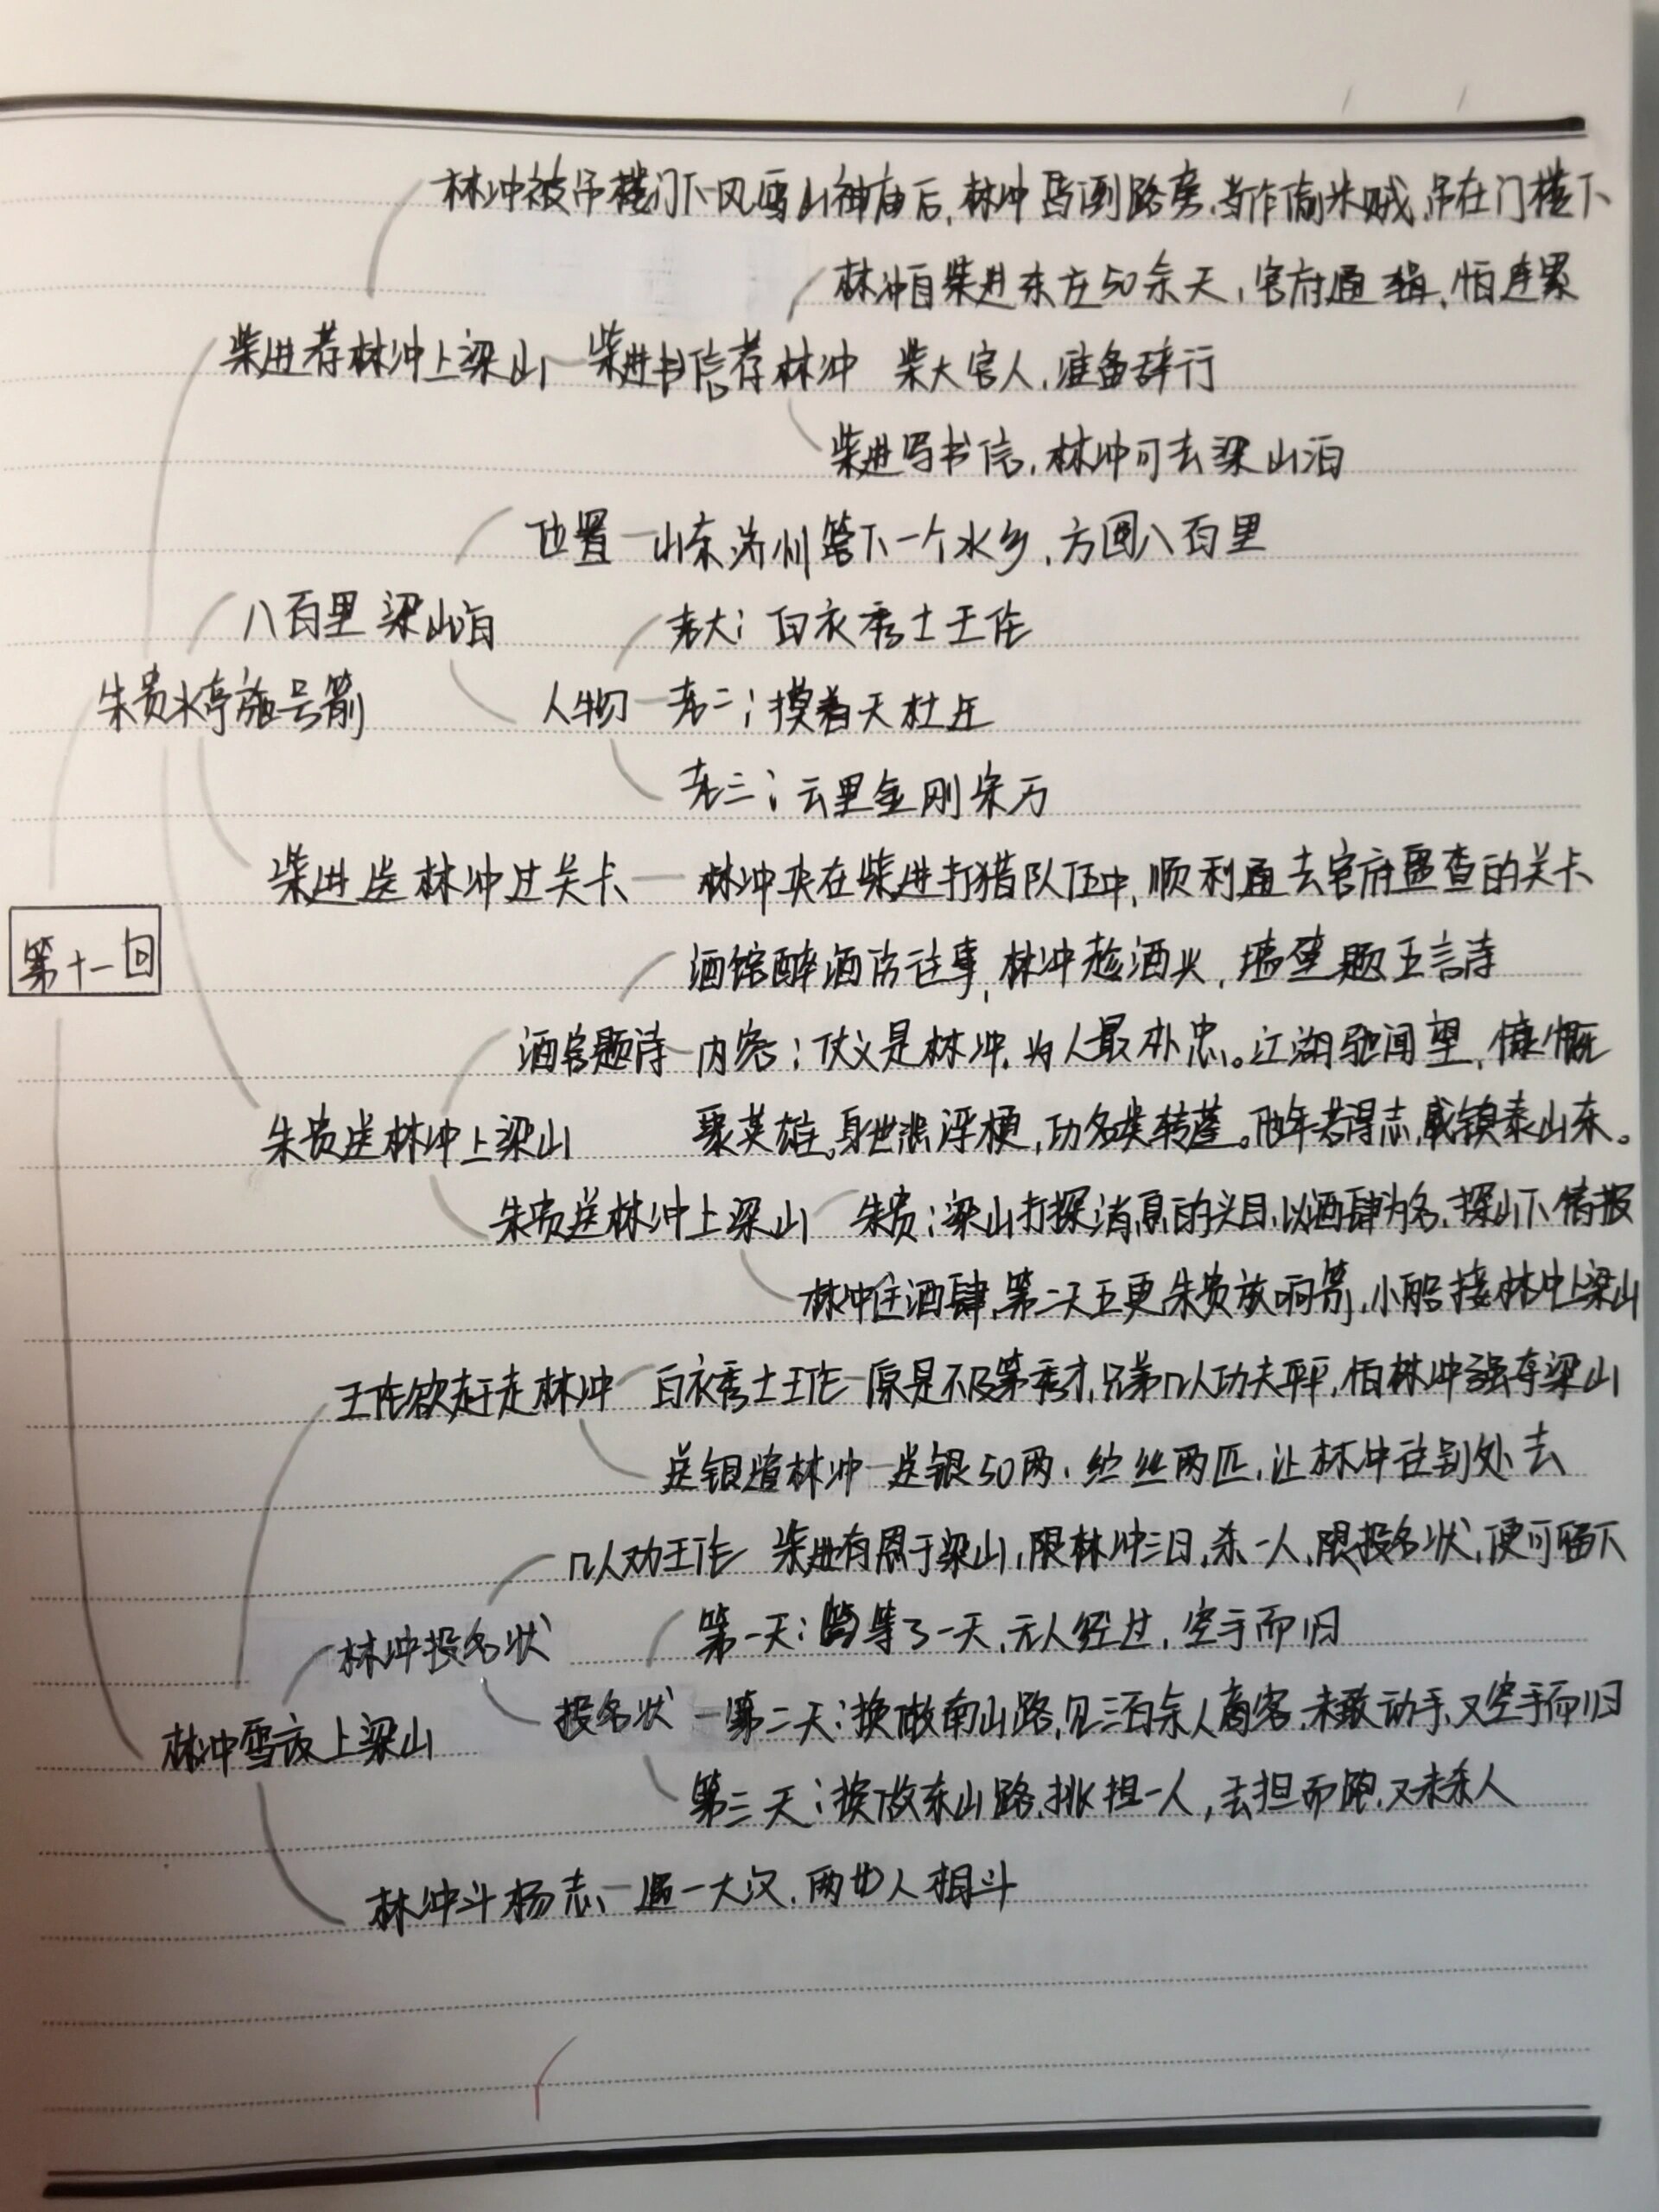 林冲被吊楼门下 风雪山神庙后,林冲醉倒路旁,当作偷米贼,吊在门楼下
林冲自柴进东庄50余天,官府通缉,怕连累
柴进荐林冲上梁山 柴进书信荐林冲 柴大官人,准备辞行
柴进写书信,林冲可去梁山泊
位置 山东济州管下一个水乡,方圆八百里
八百里梁山泊 老大:白衣秀士王伦
朱贵水亭施号箭 人物 老二:摸着天杜迁
老三:云里金刚宋万
柴进送林冲过关卡 林冲夹在柴进打猎队伍中,顺利通去官府盘查的关卡
第十一回 酒馆醉酒伤往事,林冲趁酒兴,墙壁题五言诗
酒馆题诗 内容:仗义是林冲,为人最朴忠。江湖驰闻望,慷慨
朱贵送林冲上梁山 聚英雄。身世悲浮梗,功名类转蓬。他年若得志,威镇泰山东。
朱贵送林冲上梁山 朱贵:梁山打探消息的头目,以酒肆为名,探山下情报
林冲住酒肆,第二天五更,朱贵放响箭,小船接林冲上梁山
王伦欲赶走林冲 白衣秀士王伦 原是不及第秀才,兄弟几人功夫平平,怕林冲强夺梁山
送银遣林冲 送银50两,纻丝两匹,让林冲往别处去
几人劝王伦 柴进有恩于梁山,限林冲三日,杀一人,限投名状,便可留下
林冲投名状 第一天:等了一天,无人经过,空手而归
林冲雪夜上梁山 投名状 第二天:换做南山路,见三百余人商客,未敢动手,又空手而归
第三天:换做东山路,挑担一人,丢担而跑,又未杀人
林冲斗杨志 遇一大汉,两人相斗